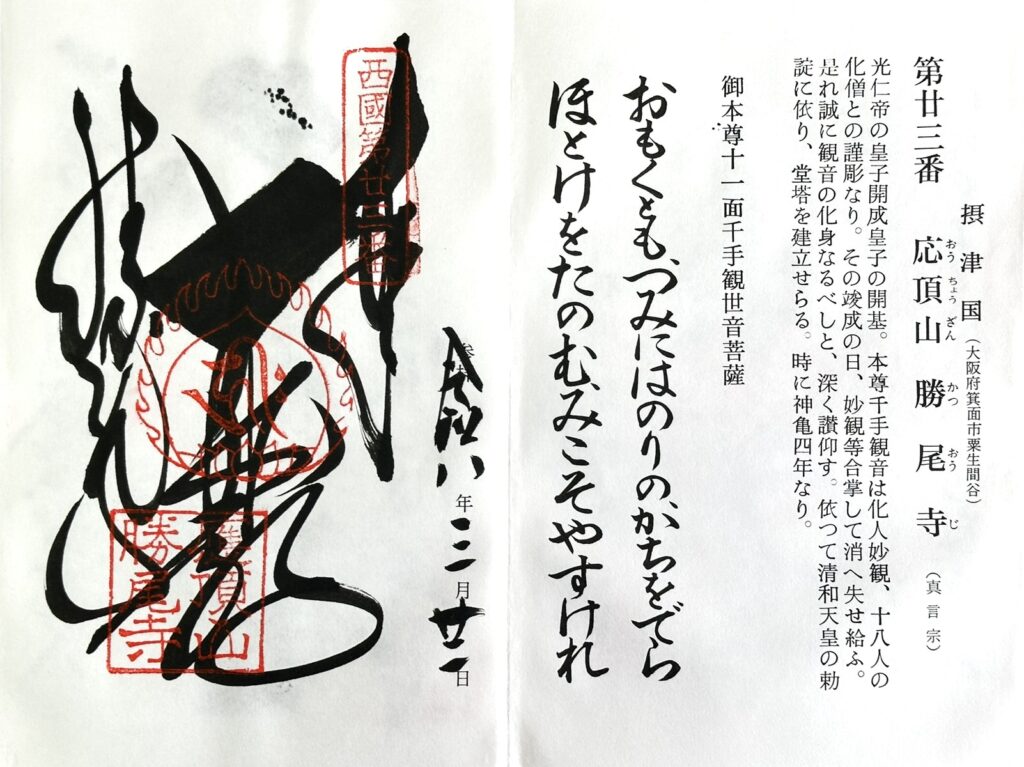 摂津国(大阪府箕面市粟生間谷)
第廿三番 応頂山 勝尾寺(真言宗)
おうちょうざん かつおうじ
光仁帝の皇子開成皇子の開基。本尊千手観音は化人妙観、十八人の
化僧との謹彫なり。その竣成の日、妙観等合掌して消へ失せ給ふ。
是れ誠に観音の化身なるべしと、深く讃仰す。依つて清和天皇の勅
諚に依り、堂塔を建立せらる。時に神亀四年なり。
御本尊十一面千手観世音菩薩
おもくとも、つみにはのりのかちをでら
ほとけをたのむみこそやすけれ
年三月廿一日
西國第廿三番
應頂山
勝尾寺